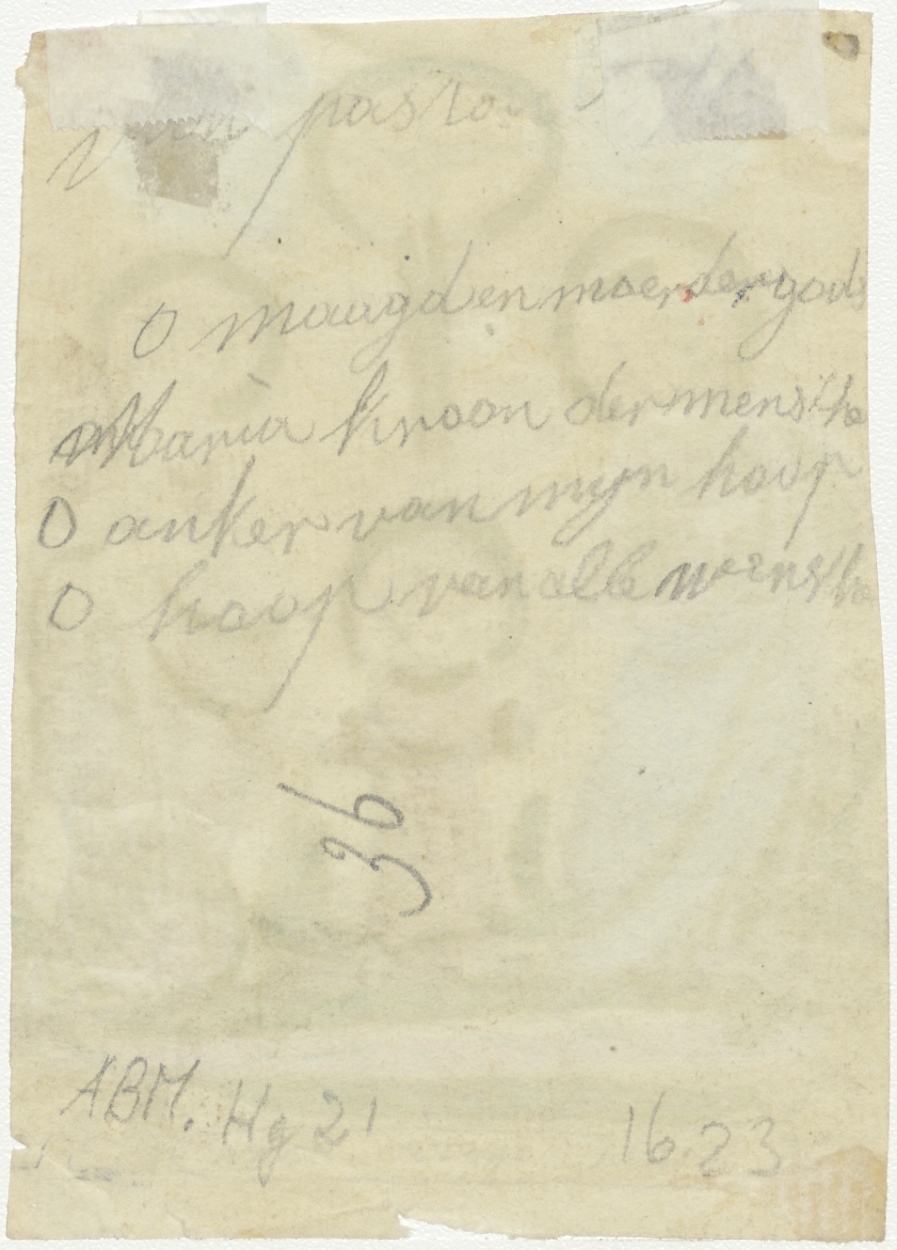 van pastor
O maagd en moeder gods
Maria kroon der mensche
O anker van mijn hoop
O hoop van alle mensche
36
ABM. Hg 21 1623